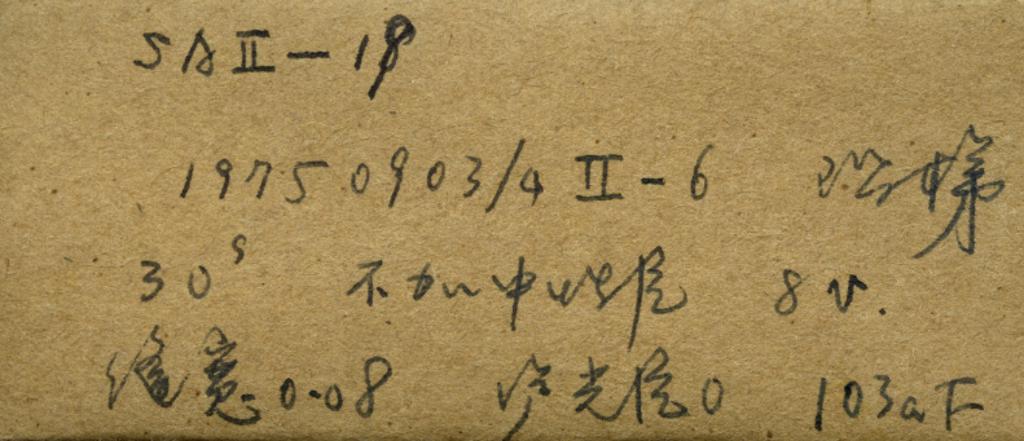 SA II-18
19750903/4 II-6 阶梯
30ˢ 不加中性片 8v.
缝宽 0.08 滤光片 0 103aF